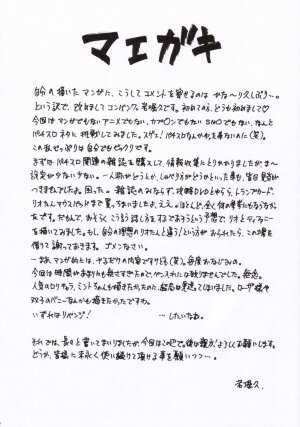 マエガキ
自分の描いたマンガに、こうしてコメントを寄せるのは かな〜り久しぶり…。
という訳で、改めましてコンバンワ。若 久です。初めての方、どうも初めまして♡
今回はマンガでもない アニメでもない カプ○ンでもない SN○でもない、なんと
パチスロネタに挑戦してみました。スゲェ! パチスロなんかやった事ないのに(笑)。
この乱ぜっぷりは自分でもビックリです。
まずは パチスロ関連の雑誌を購入して、情報収集にとりかかりましたが、ま〜
設定が少ない少ない。一人称がどうとか、しゃべり方がどうかといった事が、皆目見当が
つきませんでしたよ。困った。雑誌のみならず、攻略DVDとやら、トランプカード、
リオたんマウスパッドまで買っちゃいましたよ、ええ。ほとんど、全く体の事等だもなりゃしない
女です。だもんで、おそらく こういう話し方をするであろうという予想で リオとティファニー
を描いてみました。もし、自分の理想のリオたんと違う!という方が おられたら、この場を
借りて謝っておきます。ゴメンなさい。
今回は時間があまりにも無さすぎたので、
人気のロリ ちゃう、ミントちゃんも描きたかったのに、結局は見送ってしまいました。ローザ様や
双子のバニーなんかも描きたかったですわ。
いずれはリベンジ! …したいなぁ。
それでは、長々と書いてまいりましたが、今回はこの辺で。後は宜しくお願いします。
どうか、皆様に末永く使い続けて頂ける事を願いつつ…。